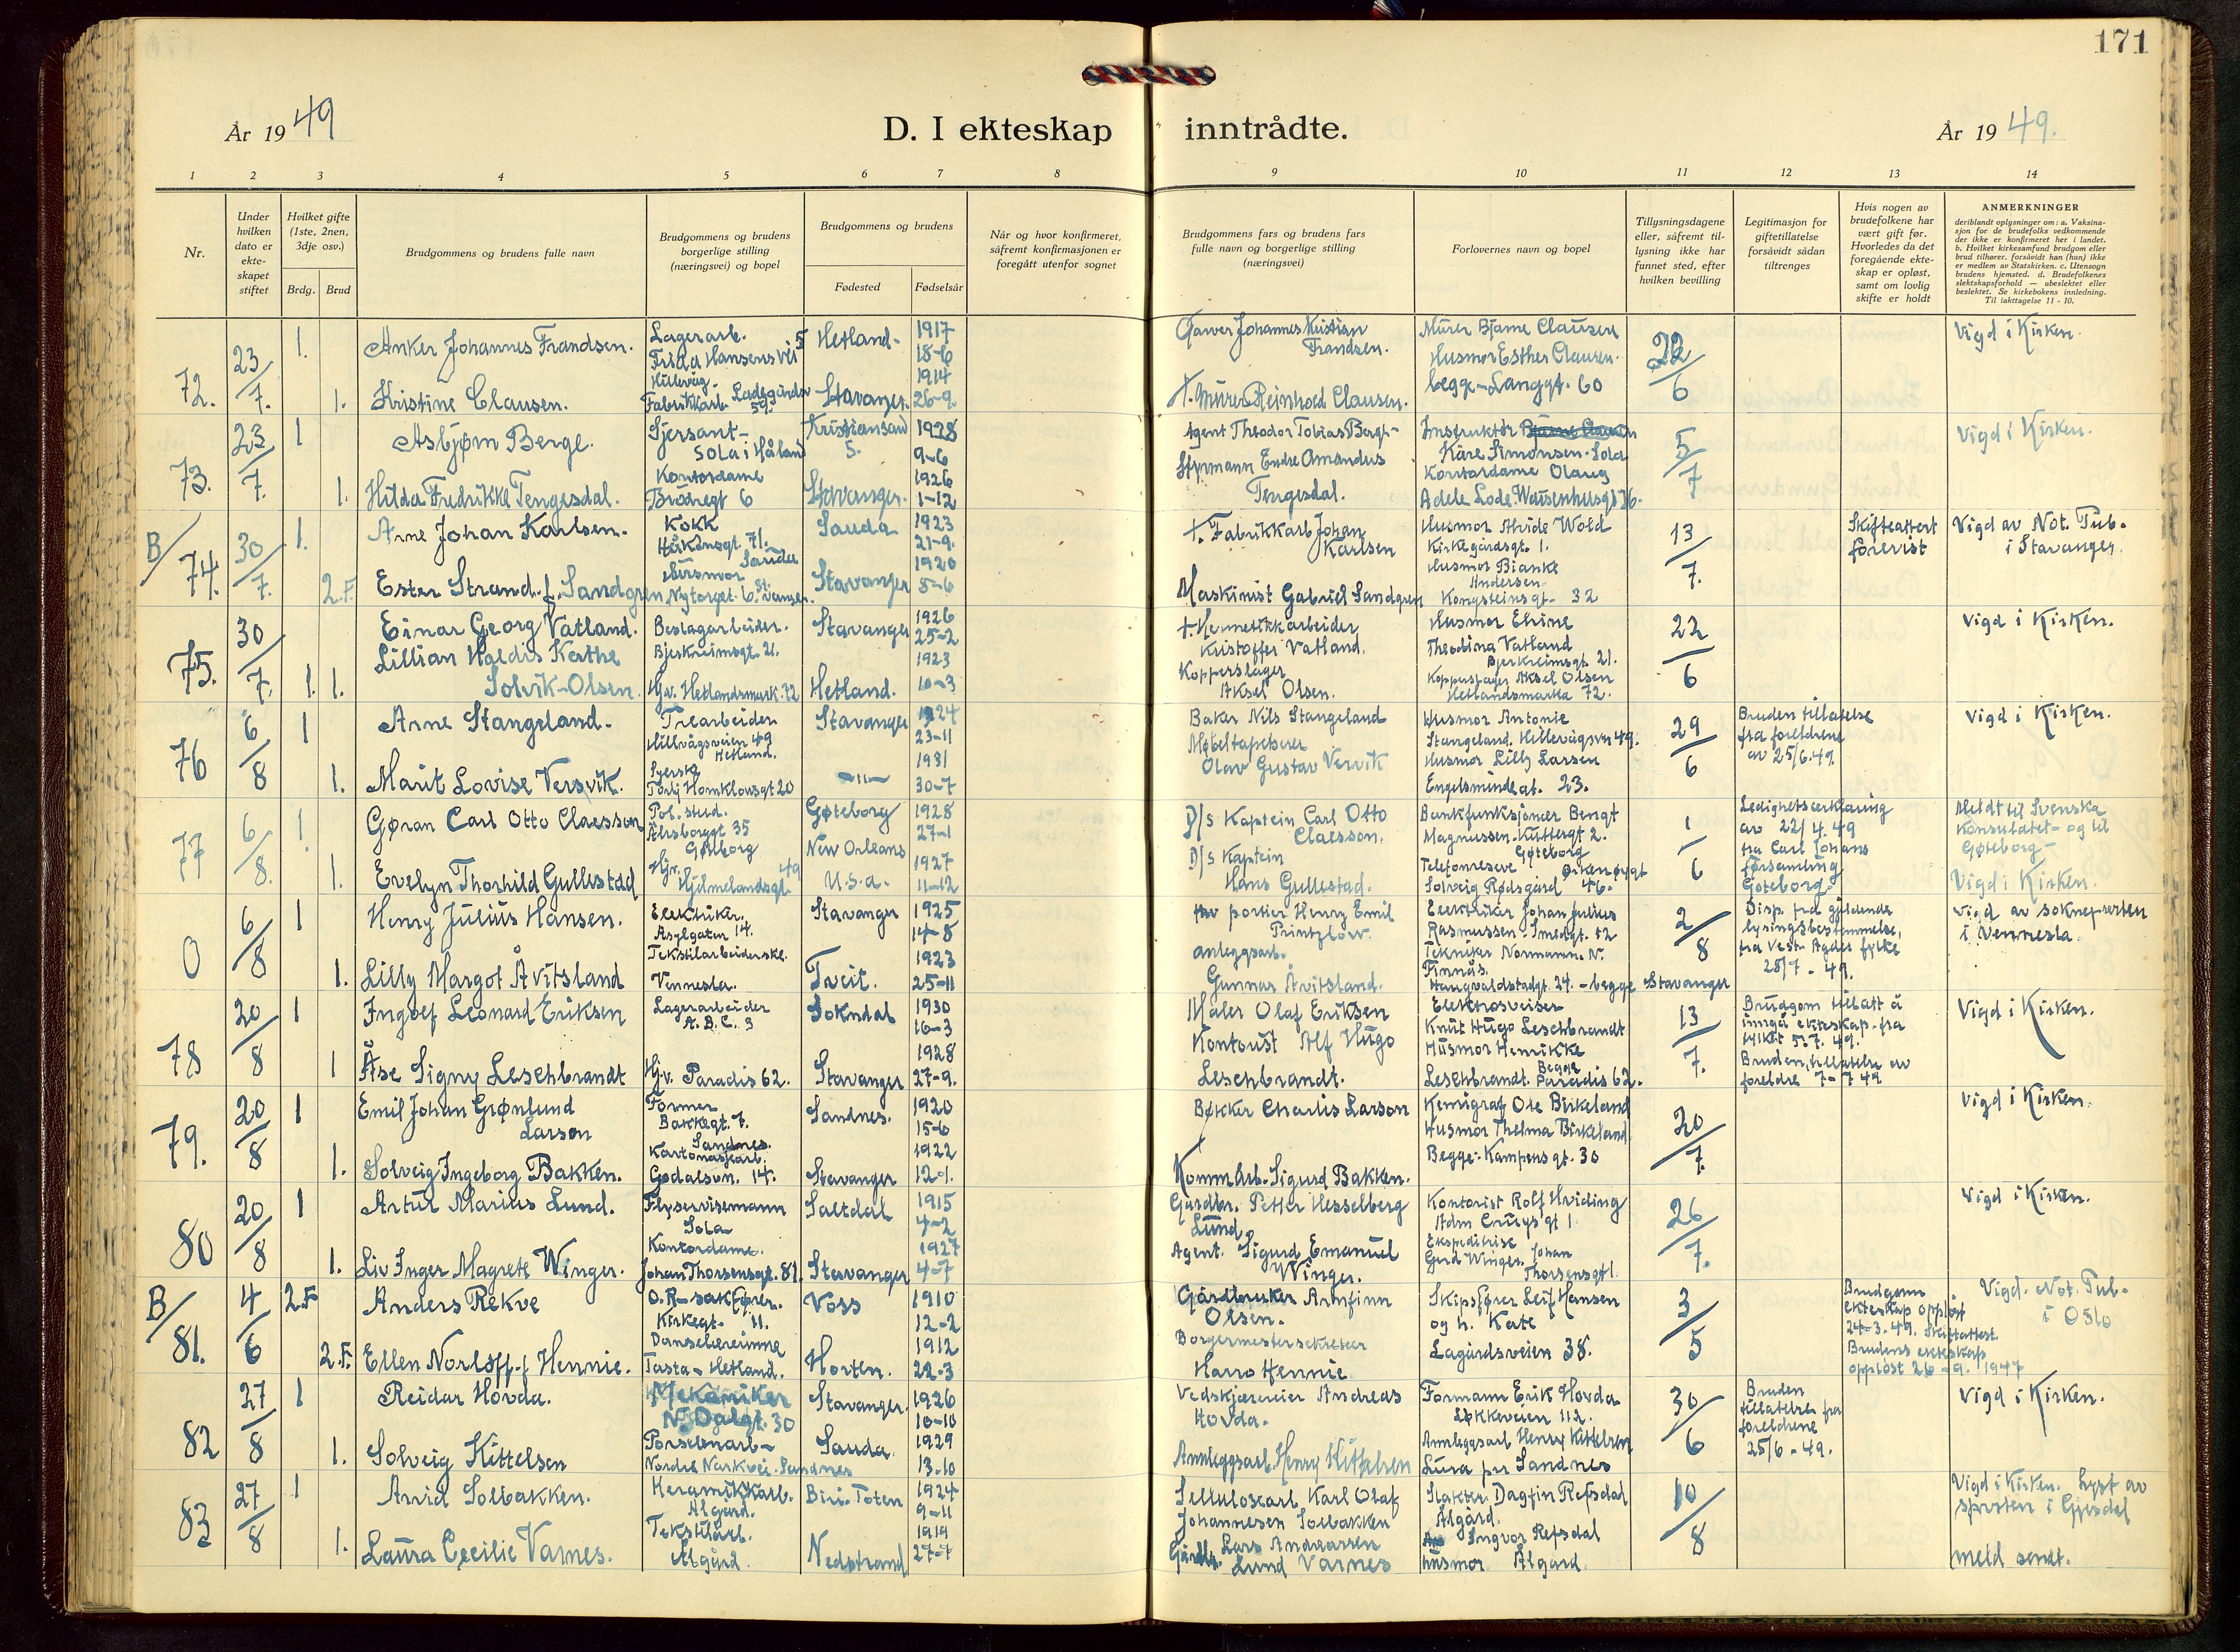 171
År 1949
D. I ekteskap
inntrådte.
År 1949.
1 2 3 4 5 6 7 8 9 10 11 12 13 14
Nr.
Under
hvilken
dato er
ekte-
skapet
stiftet
Hvilket gifte
(1ste, 2nen,
3dje osv.)
Brdg. Brud
Brudgommens og brudens fulle navn
Brudgommens og brudens
borgerlige stilling
(næringsvei) og bopel
Brudgommens og brudens
Fødested Fødselsår
Når og hvor konfirmeret,
såfremt konfirmasjonen er
foregått utenfor sognet
Brudgommens fars og brudens fars
fulle navn og borgerlige stilling
(næringsvei)
Forlovernes navn og bopel
Tillysningsdagene
eller, såfremt til-
lysning ikke har
funnet sted, efter
hvilken bevilling
Legitimasjon for
giftetillatelse
forsåvidt sådan
tiltrenges
Hvis nogen av
brudefolkene har
vært gift før.
Hvorledes da det
foregående ekte-
skap er opløst,
samt om lovlig
skifte er holdt
ANMERKNINGER
deriblandt oplysninger om: a. Vaksina-
sjon for de brudefolks vedkommende
der ikke er konfirmeret her i landet.
b. Hvilket kirkesamfund brudgom eller
brud tilhører, forsåvidt han (hun) ikke
er medlem av Statskirken. c. Utensogn
brudens hjemsted. d. Brudefolkenes
slektskapsforhold — ubeslektet eller
beslektet. Se kirkebokens innledning.
Til iakttagelse 11 - 10.
72. 23/7. 1. Anker Johannes Frandsen. Lagerarb. Frida Hansens vei 5 Hillevåg. Hetland- 1917 18-6
Johannes Kristian Frandsen. Murer Bjarne Clausen Husmor Esther Clausen. begge - Langgt. 60 22/6 Vigd i Kirken.
1. Kristine Clausen. Fabrikkarb. Ladegårdsv 59. Stavanger. 1914 26-9.
†. Murer Reinhold Clausen.
73. 23/7. 1 Asbjørn Berge. Sjersant- Sola i Håland Kristiansand S. 1928 9-6
Agent Theodor Tobias Berge- Instruktør Kåre Simonsen. Sola 5/7 Vigd i Kirken.
1. Hilda Fredrikke Tengesdal. Kontordame Brødregt 6 Stavanger. 1926 1-12
Styrmann Endre Amandus Tengesdal. Kontordame Olaug Adele Lode. Waisenhusgt 36.
B/74. 30/7. 1. Arne Johan Karlsen. Kokk Håkonsgt. 71. Sauda Sauda 1923 21-9.
†. Fabrikkarb Johan Karlsen Husmor Alvide Wold Kirkegårdsgt. 1. 13/7. Skifteattest forevist Vigd av Not. Pub. i Stavanger.
2.F. Ester Strand. f. Sandgren Husmor Nytorget. 6. Stvanger. Stavanger 1920 5-6
Maskinist Gabriel Sandgren Husmor Bianka Andersen Kongsteinsgt- 32
75. 30/7. 1. Einar Georg Vatland. Beslagarbeider. Bjerkreimsgt. 21. Stavanger 1926 25-2
† Hermetikkarbeider Kristoffer Vatland. Husmor Elrine Theodina Vatland Bjerkreimsgt. 21. 22/6 Vigd i Kirken.
1. Lillian Haldis Kathe Solvik-Olsen. Hjv. Hetlandsmark. 72 Hetland. 1923 10-3
Kopperslager Aksel Olsen. Kopperslager Aksel Olsen Hetlandsmarka 72.
76 6/8 1 Arne Stangeland. Trearbeider Hillevågsveien 49 Hetland. Stavanger 1924 23-11
Baker Nils Stangeland Husmor Antonie Stangeland. Hillevågsvn 49. 29/6 Bruden tillatelse fra foreldrene av 25/6.49. Vigd i Kirken.
1. Marit Lovise Versvik. Syerske Torbj Hornklovsgt 20 -"- 1931 30-7
Møbeltapetserer Olav Gustav Vervik Husmor Lilly Larsen Engelsminde at. 23.
77 6/8. 1 Gøran Carl Otto Claesson Pol. stud. Älvsborggt 35 Göteborg Gøteborg 1928 27-1
D/s Kaptein Carl Otto Claesson. Bankfunksjonær Bengt Magnussen. Kullergt 2. Gøteborg 1/6 Ledighetserklæring av 22/4.49 fra Carl Johans församling Göteborg. Meldt til Svenska Konsulatet - og til Gøteborg - Vigd i Kirken.
1. Evelyn Thorhild Gullestad Hjv. Hjelmelandsgt. 49 New Orleans U.S.A. 1927 11-12
D/s Kaptein Hans Gullestad. Telefonreserve Solveig Rødsgård 46.
0 6/8 1 Henry Julius Hansen. Elektriker. Asylgaten 14. Stavanger 1925 14-8
portier Henry Emil Printzlow. Elektriker Johan Julius Rasmussen. Smedgt. 12 2/8 Stavanger Disp. fra gjeldende lysingsbestemmelse, fra Vest-Agder fylke 28/7 - 49. Vigd av soknepresten i Vennesla.
1. Lilly Margot Åvitsland Tekstilarbeiderske. Vennesla. Tveit. 1923 25-11
anleggsarb. Gunnar Åvitsland. Tekniker Normann. N. Finnås. Haugvaldstadgt. 24. - begge
78 20/8 1 Ingolf Leonard Eriksen Lagerarbeider A.B.C. 3 Sokndal 1930 16-3
Maler Olaf Eriksen Elektrosveiser Knut Hugo Leschbrandt 13/7. Brudgom tillatt å inngå ekteskap. fra fylket 5.7. 49. Vigd i Kirken.
1 Åse Signy Leschbrandt Hjv. Paradis 62. Stavanger 1928 27-9.
Kontorist Alf Hugo Leschbrandt. Husmor Henrikke Leschbrandt. Begge Paradis 62. Bruden, tillatelse av foreldre 7-7 49
79. 20/8 1 Emil Johan Grønlund Larson Former Bakkegt. 7. Sandnes. Sandnes. 1920 15-6
Bøkker Charlis Larson Kemigraf Ole Birkeland Husmor Thelma Birkeland Begge: Kampensgt. 30 20/7. Vigd i Kirken.
1. Solveig Ingeborg Bakken. Kartonasjearb. Godalsvn. 14. Stavanger 1922 12-1.
Komm Arb. Sigurd Bakken.
80 20/8 1 Artur Marius Lund. Flyservisemann Sola Saltdal 1915 4-2
Gårdbr. Petter Hesselberg Lund. Kontorist Rolf Hviding Adm Cruys gt 1 26/7. Vigd i Kirken.
1. Liv Inger Magrete Winger. Kontordame. Johan Thorsensgt. 81. Stavanger 1927 4-7
Agent. Sigurd Emanuel Winger. Ekspeditrise Gerd Winger. Johan Thorsensgt
B/81. 4/6 2.F Anders Rekve O.R-sakfører. Kirkegt- 11. Voss 1910 12-2
Gårdbruker Arnfinn Olsen. Skipsfører Leif Hansen og h. Kate Lagårdsveien 38. 3/5 Brudgom ekteskap oppløst 24-3. 49. Skifteattest. Vigd. Not. Pub. i Oslo
2.F. Ellen Norløff. f Hennie. Danselærerinne Tasta - Hetland. Horten. 1912 22-3
Borgermestersekretær Harro Hennie. Brudens ekteskap oppløst 26-9. 1947
82 27/8 1 Reidar Hovda. Mekaniker N. Dalgt. 30 Stavanger. 1926 10-10
Vedskjæreeier Andreas Hovda. Formann Erik Hovda Løkkeveien 112. 30/6 Bruden tillatelse fra foreldrene 25/6 - 49. Vigd i Kirken.
1. Solveig Kittelsen Porselenarb- Nordre Narkvei. Sandnes Sauda. 1929 13.10
Annleggsarb. Henry Kittelsen Annleggsarb Henry Kittelsen Lura pr Sandnes
83 27/8 1 Arvid Solbakken. Keramikkarb. Ålgård. Biri. Toten 1924 9-11
Selluloscarb. Karl Olaf Johannesen Solbakken Slakter. Dagfin Refsdal Ålgård. 10/8 Vigd i Kirken. lyst av sprsten i Gjesdal
1. Laura Cecilie Varnes. Tekstilarb. Ålgård. Nedstrand 1919 27-7
Gårdbr. Lars Andreassen Lund Varnes Ingvor Refsdal husmor Ålgård. meld sendt.